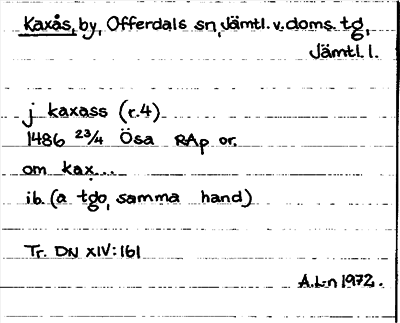 Kaxås, by, Offerdals sn, Jämtl. v. doms. tg,
Jämtl. l.
j kaxass (r.4)
1486 23/4 Ösa RAp or.
om kax...
ib. (a tgo, samma hand)
Tr. DN XIV:161
A.L-n 1972.